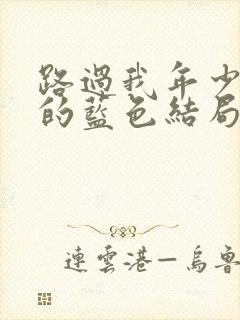 路過我年少
的藍色結局
連雲港—烏魯